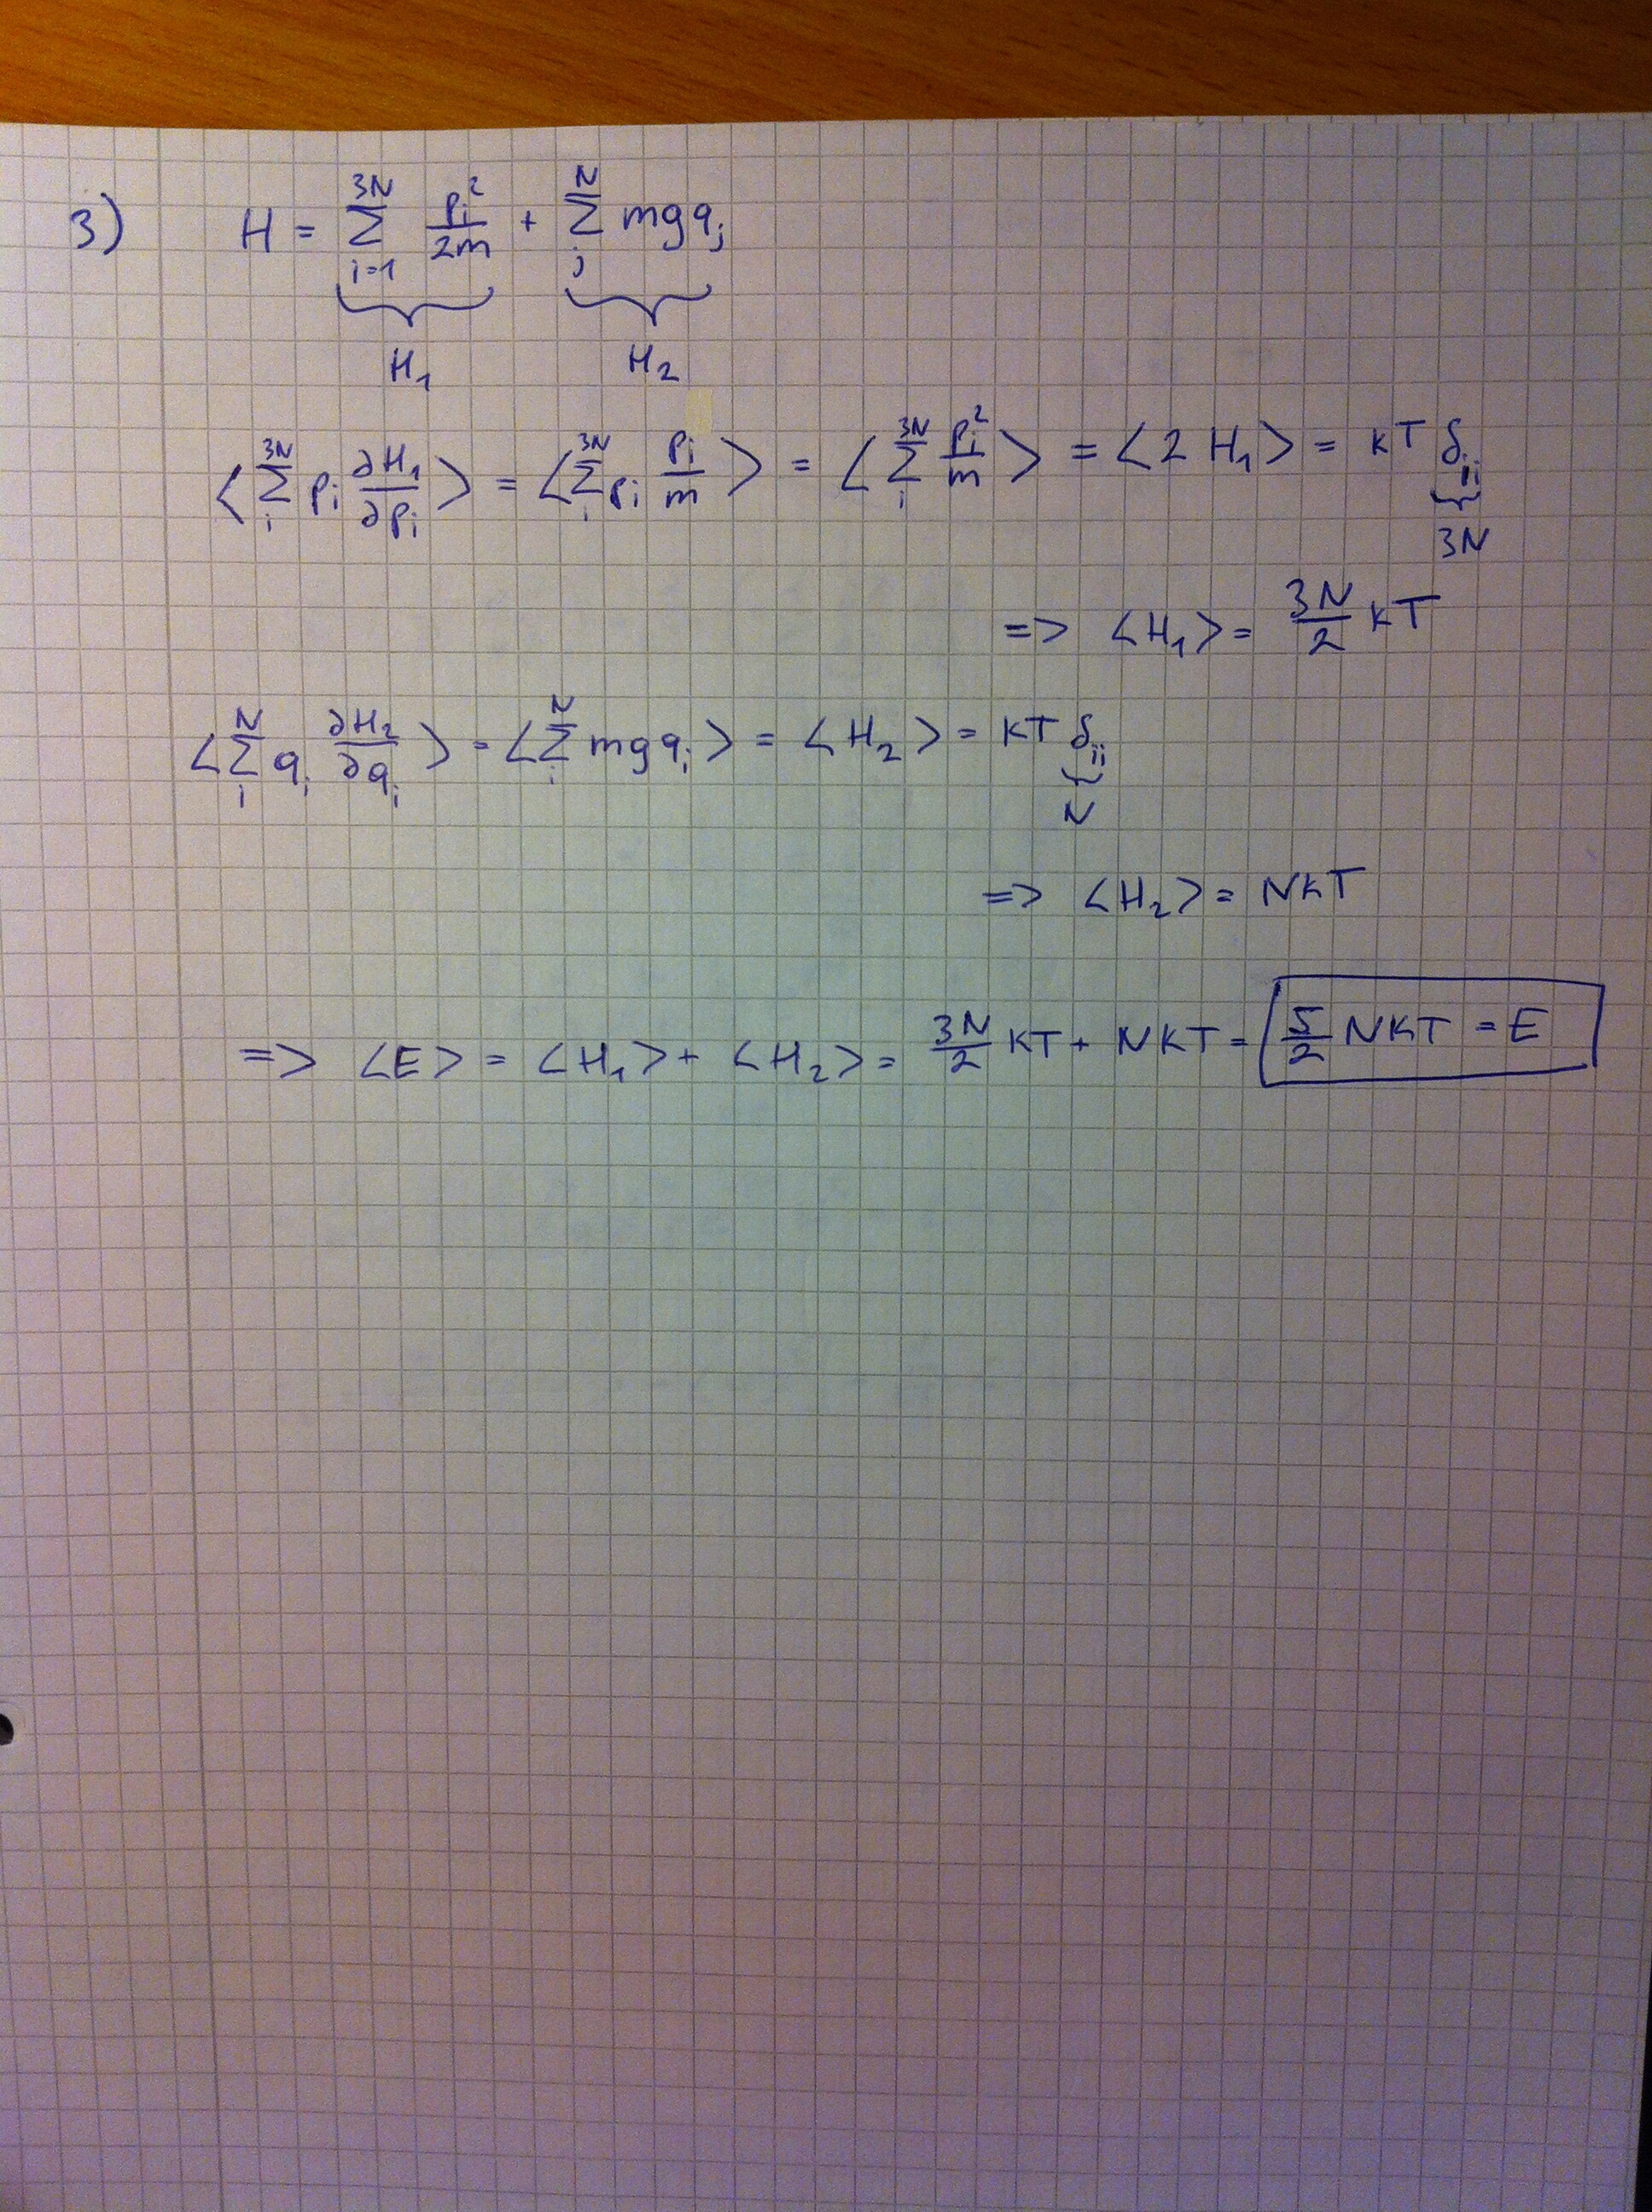 3) H = ∑_{i=1}^{3N} p_i²/2m + ∑_j^N mgq_j
H₁ H₂
⟨∑_i^{3N} p_i ∂H₁/∂p_i⟩ = ⟨∑_i^{3N} p_i p_i/m⟩ = ⟨∑_i^{3N} p_i²/m⟩ = ⟨2 H₁⟩ = kT δ_{ii}
3N
=> ⟨H₁⟩ = 3N/2 kT
⟨∑_i^N q_i ∂H₂/∂q_i⟩ = ⟨∑_i^N mgq_i⟩ = ⟨H₂⟩ = kT δ_{ii}
N
=> ⟨H₂⟩ = NkT
=> ⟨E⟩ = ⟨H₁⟩ + ⟨H₂⟩ = 3N/2 kT + NkT = 5/2 NkT = E